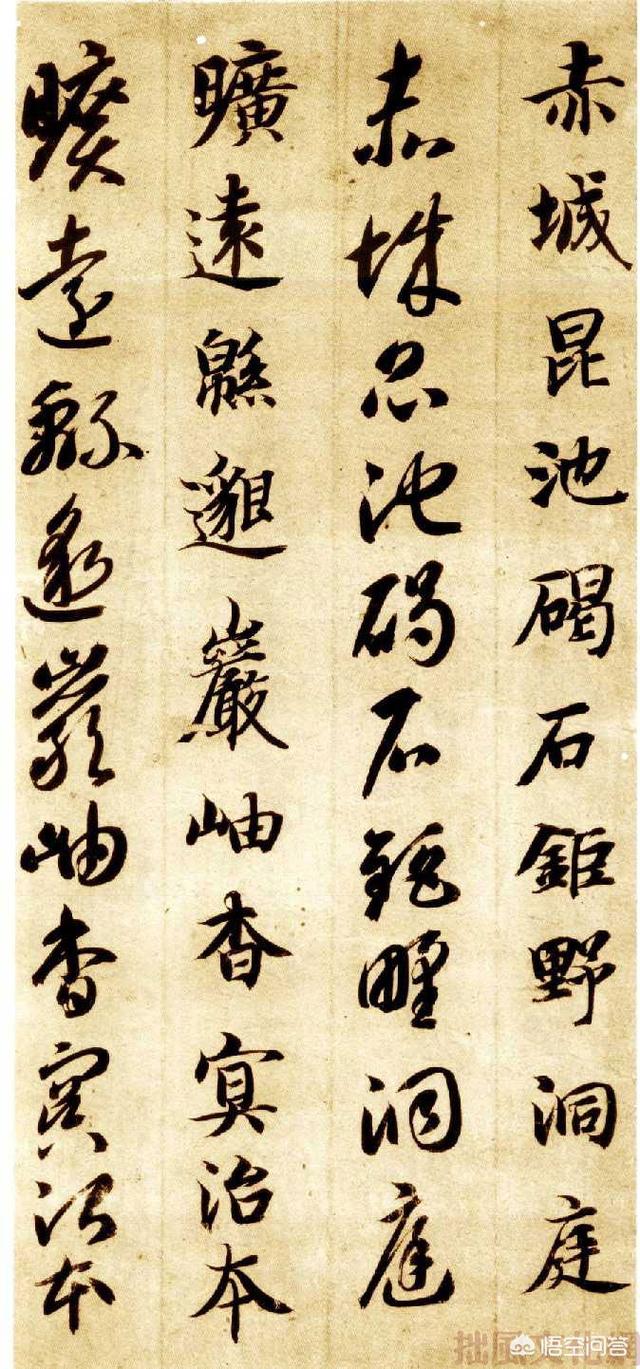 赤城昆池碣石鉅野洞庭
赤城昆池碣石鉅野洞庭
曠遠緜邈巖岫杳冥治本
曠遠緜邈巖岫杳冥治本
悟空问答